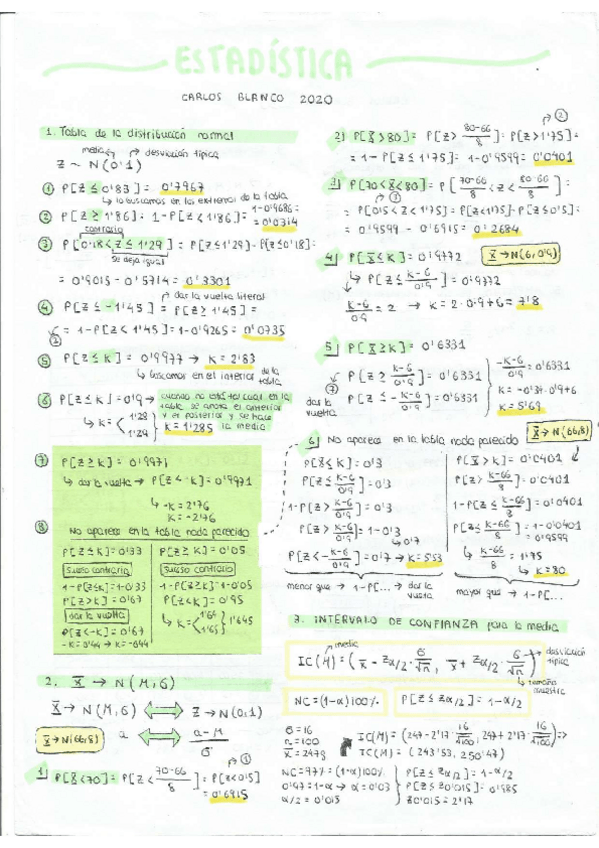 ESTADÍSTICA
CARLOS BLANCO 2020
1. Tabla de la distribución normal
media desviación típica
Z ~ N(0'1)
① P[Z ≤ 0'83] = 0'7967
↳ lo buscamos en los extremos de la tabla
② P[Z ≥ 1'86] = 1-P[Z < 1'86] = 1-0'9686 =
= 0'0314
contrario
③ P[0'18 < Z ≤ 1'29] = P[Z ≤ 1'29] - P[Z ≤ 0'18] =
se deja igual
= 0'9015 - 0'5714 = 0'3301
dar la vuelta literal
④ P[Z ≤ -1'45] = P[Z ≥ 1'45] =
= 1-P[Z < 1'45] = 1-0'9265 = 0'0735
②
⑤ P[Z ≤ K] = 0'9977 → K = 2'83
↳ buscamos en el interior de la tabla
⑥ P[Z ≤ K] = 0'9 → cuando no está tal cual en la
tabla, se anota el anterior
y el posterior y se hace
la media
↳ K = < 1'28 1'29 K = 1'285
⑦ P[Z ≥ K] = 0'9971
↳ dar la vuelta → P[Z < -K] = 0'9971
↳ -K = 2'76
K = -2'76
⑧ No aparece en la tabla nada parecido
P[Z ≤ K] = 0'33
Suceso contrario
1-P[Z ≤ K] = 1-0'33
P[Z > K] = 0'67
dar la vuelta
P[Z < -K] = 0'67
-K = 0'44 → K = -0'44
P[Z ≥ K] = 0'05
Suceso contrario
1-P[Z ≥ K] = 1-0'05
P[Z < K] = 0'95
↳ K = { 1'64 1'65 } 1'645
2. X̄ → N(M,σ)
X̄ → N(M,σ) ⟺ Z → N(0'1)
X̄ → N(66,8) a ⟺ a-M / σ
1) P[X̄ < 70] = P[Z < 70-66 / 8] = P[Z < 0'5] ①
= 0'6915
2) P[X̄ > 80] = P[Z > 80-66 / 8] = P[Z > 1'75] = ②
= 1-P[Z ≤ 1'75] = 1-0'9599 = 0'0401
3) P[70 < X̄ < 80] = P[70-66 / 8 < Z < 80-66 / 8] =
③
= P[0'5 < Z < 1'75] = P[Z < 1'75] - P[Z ≤ 0'5] =
= 0'9599 - 0'6915 = 0'2684
4) P[X̄ ≤ K] = 0'9772 X̄ → N(6,0'9)
↳ P[Z ≤ K-6 / 0'9] = 0'9772
K-6 / 0'9 = 2 → K = 2·0'9+6 = 7'8
5) P[X̄ ≥ K] = 0'6331
↳ P[Z ≥ K-6 / 0'9] = 0'6331
⑦
dar la vuelta
P[Z ≤ -K-6 / 0'9] = 0'6331
K = 5'69
6) No aparece en la tabla nada parecido X̄ → N(66,8)
P[X̄ ≤ K] = 0'3
P[Z ≤ K-6 / 0'9] = 0'3
1-P[Z > K-6 / 0'9] = 0'3
P[Z > K-6 / 0'9] = 1-0'3
↳ 0'7
P[Z < -K-6 / 0'9] = 0'7 → K = 5'53
menor que → 1-P[... → dar la vuelta
P[X̄ > K] = 0'0401
P[Z > K-66 / 8] = 0'0401
1-P[Z ≤ K-66 / 8] = 0'0401
P[Z ≤ K-66 / 8] = 1-0'0401
= 0'9599
↳ K-66 / 8 = 1'75
↳ K = 80
mayor que → 1-P[...
3. INTERVALO DE CONFIANZA para la media
media desviación típica
IC(M) = ( x̄ - Zα/2 · σ/√n , x̄ + Zα/2 · σ/√n )
↳ tamaño muestra
NC = (1-α)100% P[Z ≤ Zα/2] = 1-α/2
σ = 16
n = 100
IC(M) = (247 - 2'17 · 16/√100, 247 + 2'17 · 16/√100) =>
IC(M) = (243'53, 250'47)
NC = 97% = (1-α)100%
0'97 = 1-α → α = 0'03
α/2 = 0'015
P[Z ≤ Zα/2] = 1-α/2
P[Z ≤ Z0'015] = 0'985
Z0'015 = 2'17